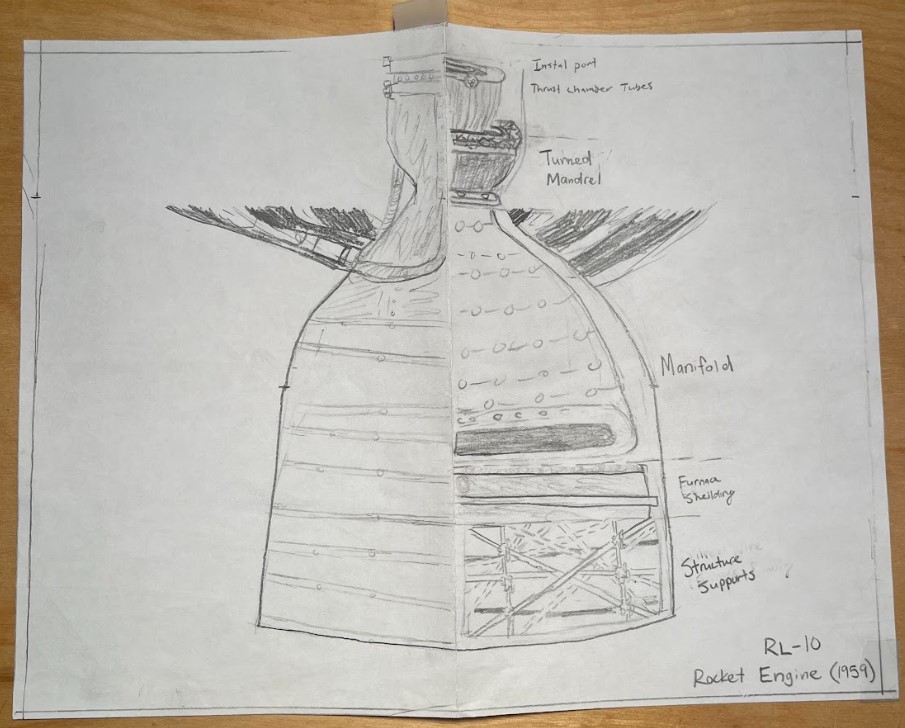 Instal port
Thrust Chamber Tubes
Turned
Mandrel
Manifold
Furnna
Sheilding
Structure
Supports
RL-10
Rocket Engine (1959)